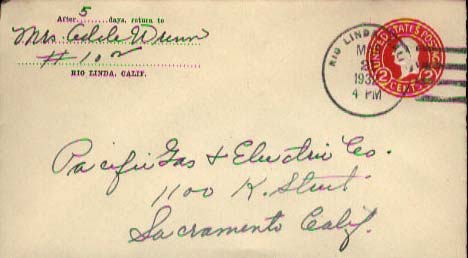 After 5 days, return to
Mrs Adele Wrenn
# 102
RIO LINDA, CALIF.
RIO LINDA
M
2
193
4 PM
UNITED STATES POS
2 CENTS 2
Pacific Gas & Electric Co.
1100 K. Street
Sacramento Calif.